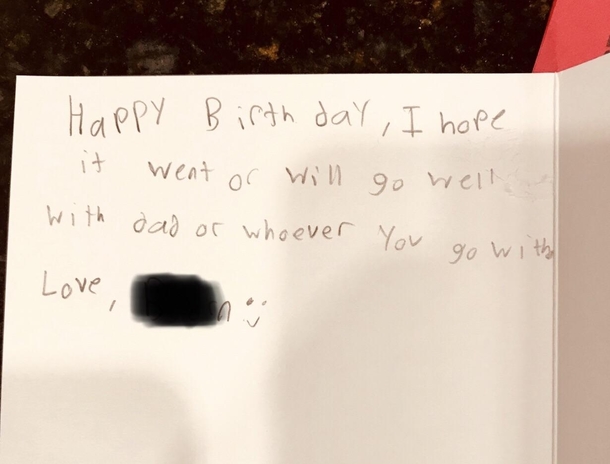 Happy Birthday, I hope
it went or will go well
with dad or whoever you go with
Love, n :)